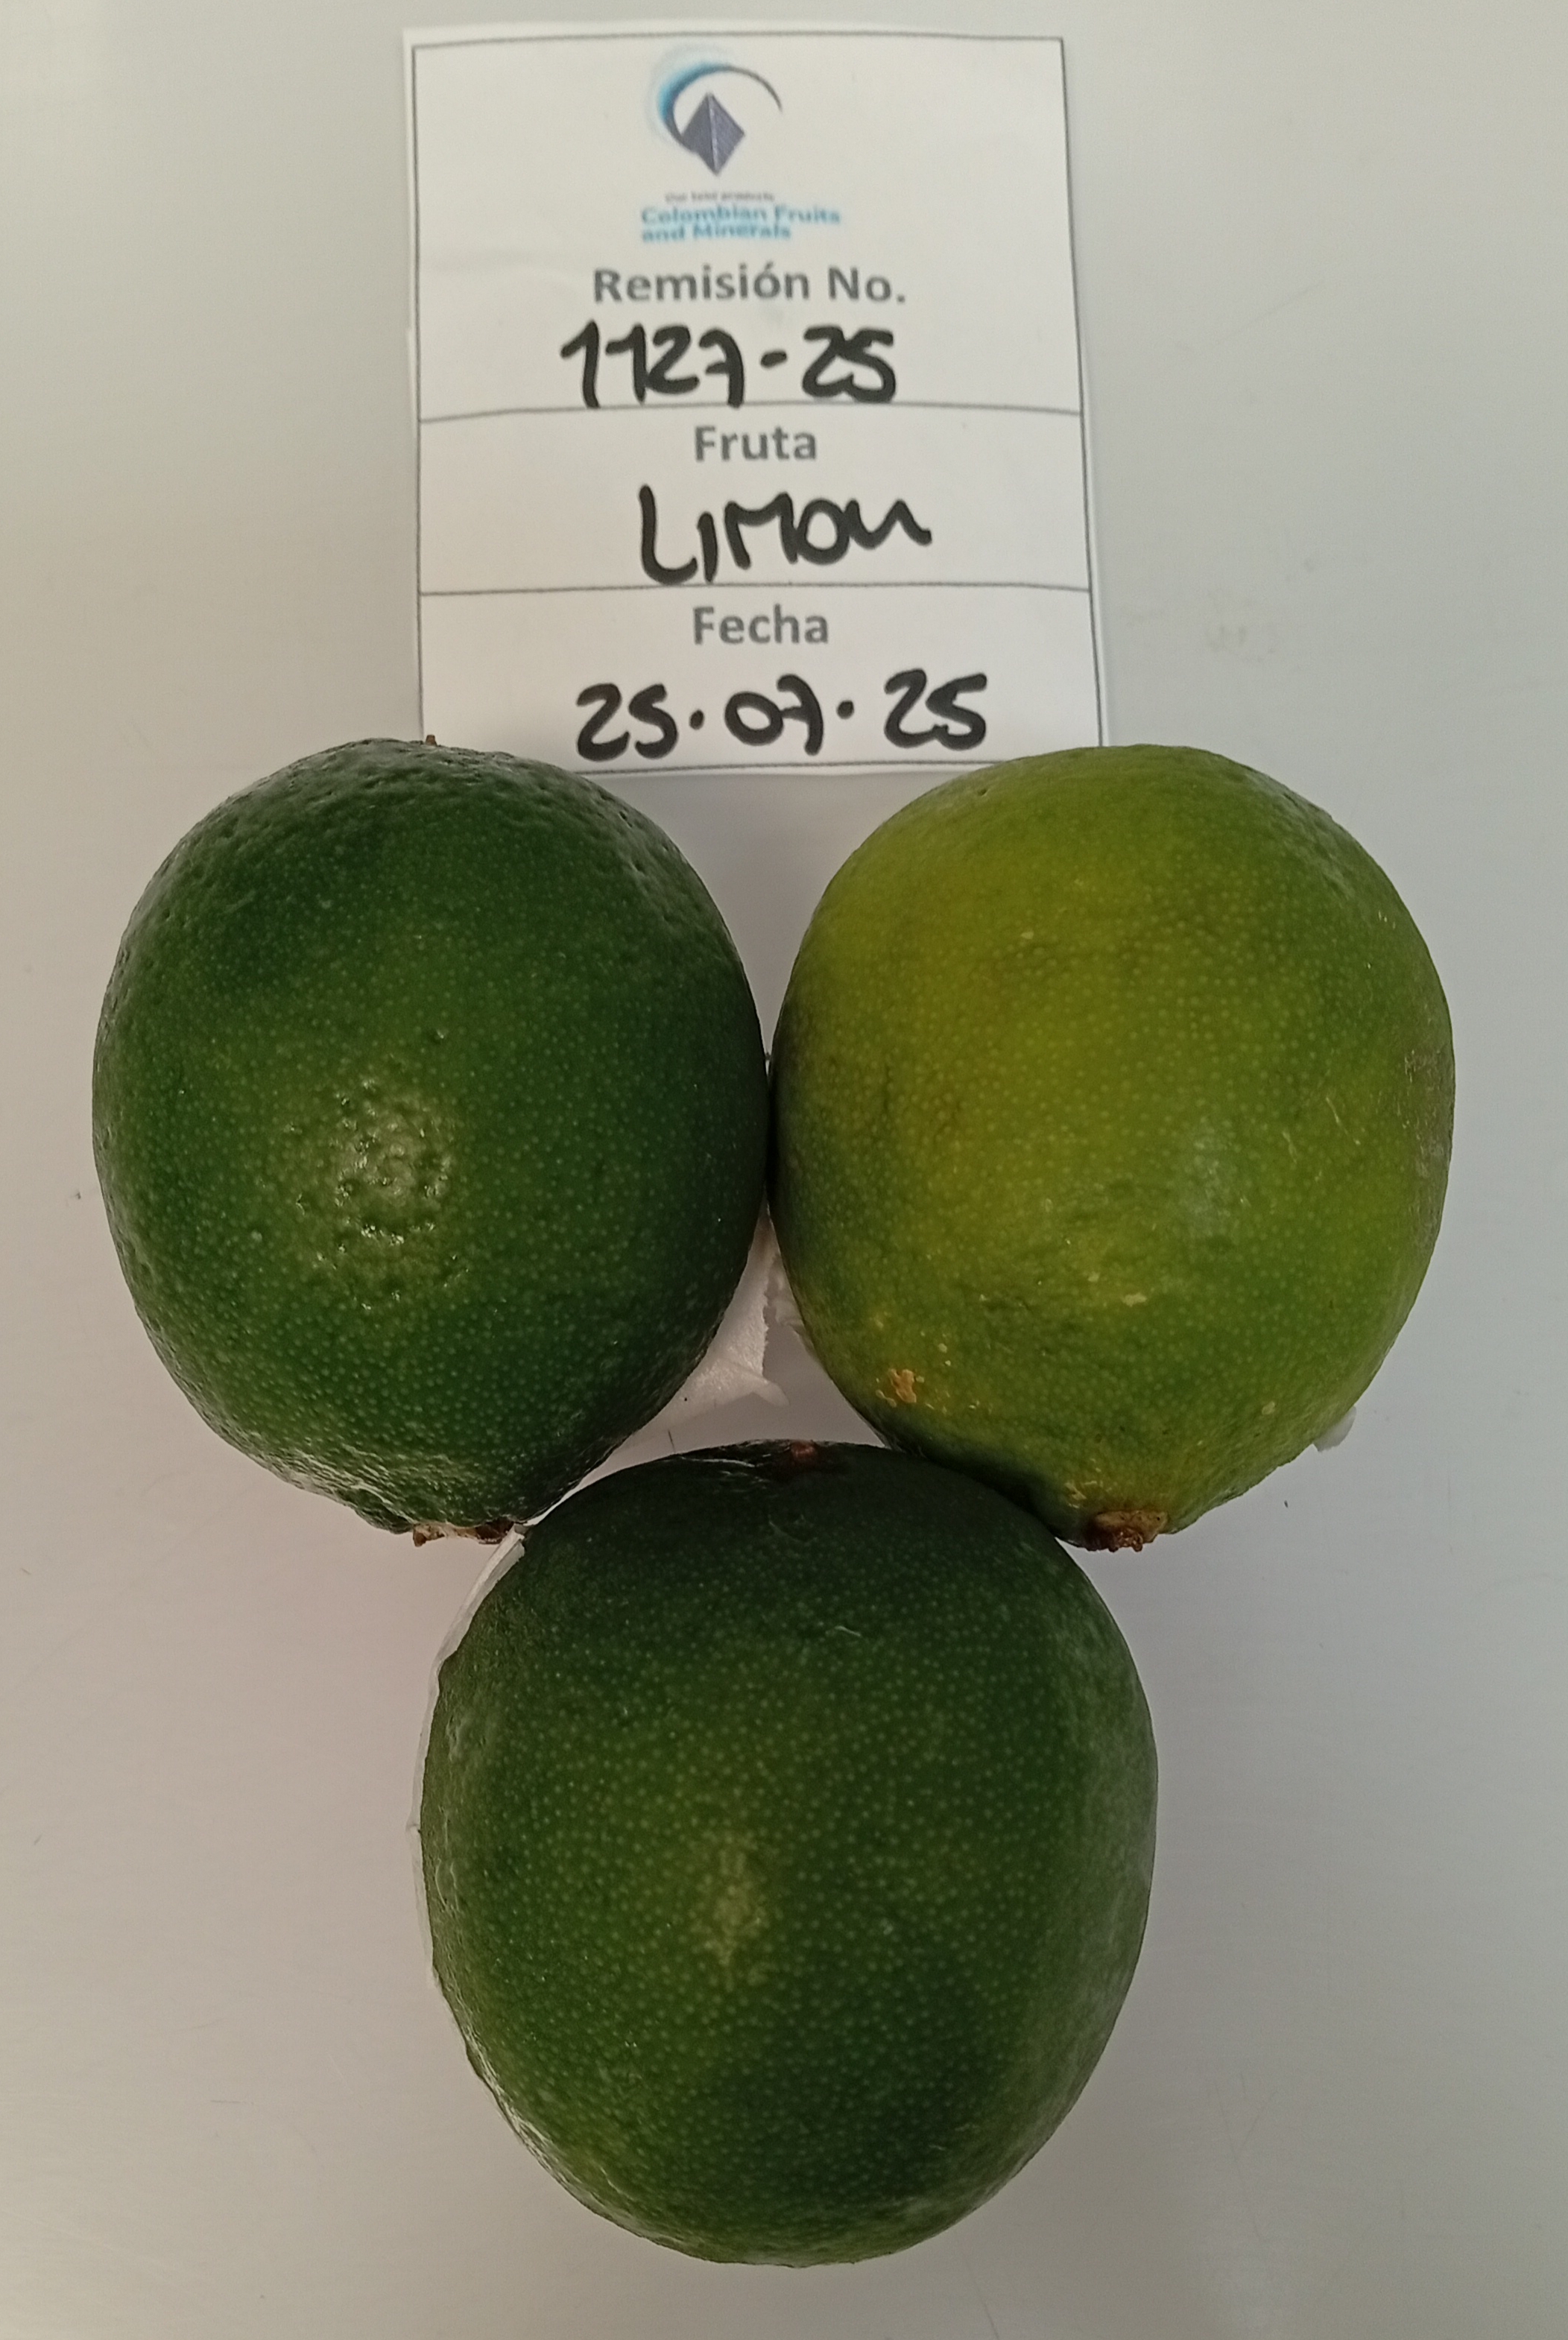 Our best products
Colombian Fruits
and Minerals
Remisión No.
1127-25
Fruta
LIMON
Fecha
25.07.25